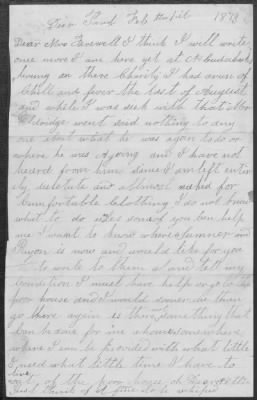 Feb 1879
Dear Mrs Farewell I think I will write
once more I am here yet at
living on there Charity I had a run of
Chill and fever the last of August
and while I was sick with that Mr
Eldridge went said nothing to any
one about what he was agoin to do or
where he was agoing and I have not
heard from him since I am left entir
ely destitute and allmost naked for
Comfortable Clothing I do not know
what to do unless some of you Can help
me I want to know where Sumner and
is now and would like for you
to write to them and tell my
Condition I must have help or go to the
poor house and I would sooner die then
go there again is there something that
Can be done for me
where I can be provided with what little
I need what little time I have to
live
out of the poor house oh Dear